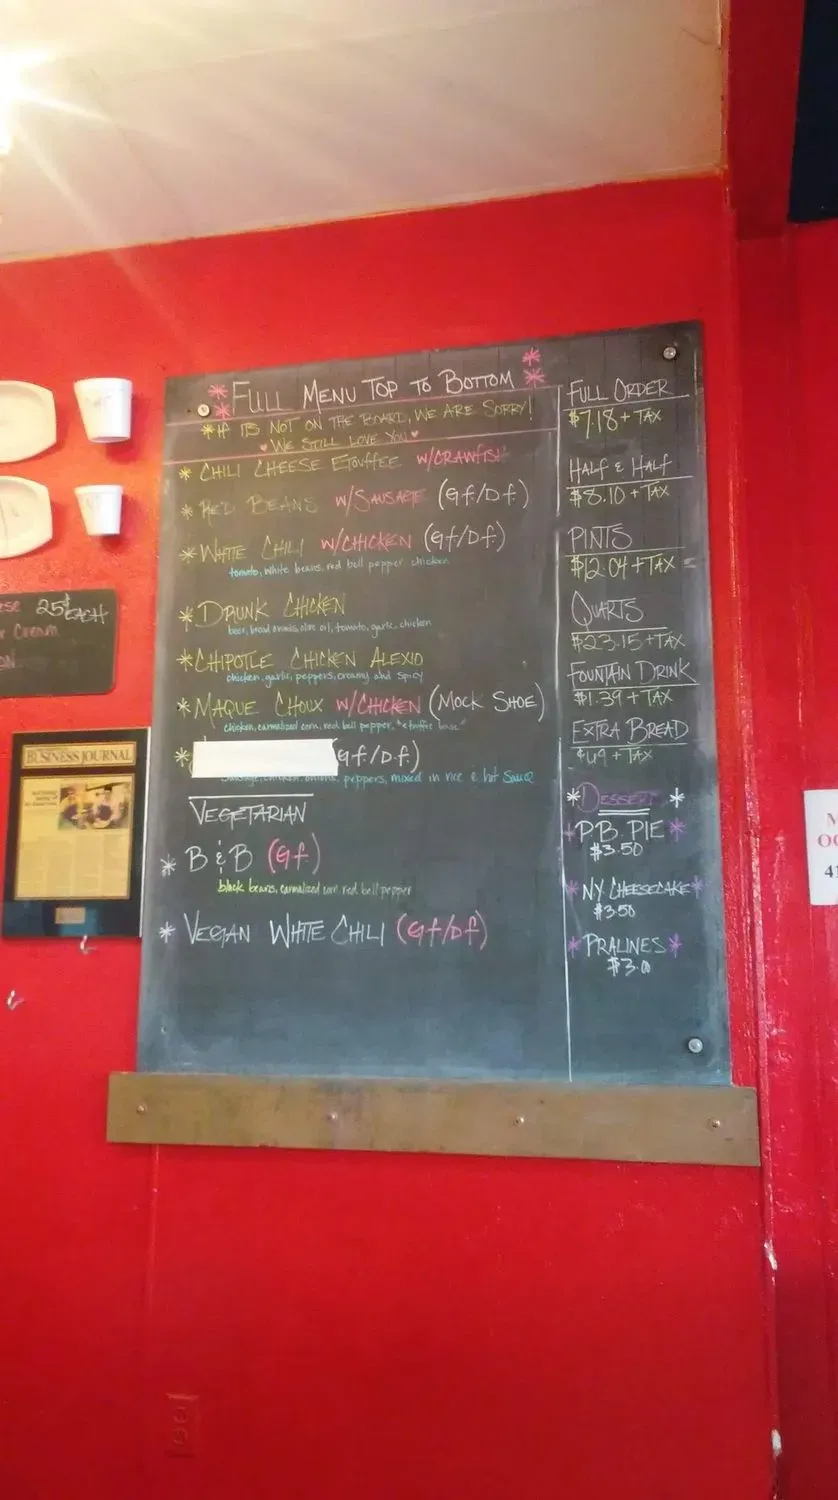 * FULL MENU TOP TO BOTTOM *
* If ITS NOT ON THE BOARD, WE ARE SORRY!
♥ WE STILL LOVE YOU ♥
* CHILI CHEESE ETOUFFEE W/CRAWFISH
* RED BEANS W/SAUSAGE (Gf/Df)
* WHITE CHILI W/CHICKEN (Gf/Df)
tomato, white beans, red bell pepper, chicken
* DRUNK CHICKEN
beer, bread crumbs, olive oil, tomato, garlic, chicken
* CHIPOTLE CHICKEN ALEXIO
chicken, garlic, peppers, creamy and spicy
* MAQUE CHOUX W/CHICKEN (MOCK SHOE)
chicken, carmalized corn, red bell pepper, "etouffee base"
* (Gf/Df)
sausage, chicken, onions, peppers, mixed in rice & hot sauce
VEGETARIAN
* B & B (Gf)
black beans, carmalized corn red bell pepper
* VEGAN WHITE CHILI (Gf/Df)
FULL ORDER
$7.18 + TAX
HALF & HALF
$8.10 + TAX
PINTS
$12.04 + TAX
QUARTS
$23.15 + TAX
FOUNTAIN DRINK
$1.39 + TAX
EXTRA BREAD
¢49 + TAX
* DESSERT *
* P.B. PIE *
$3.50
* NY CHEESECAKE *
$3.50
* PRALINES *
$3.00
25¢ EACH
Cream
BUSINESS JOURNAL